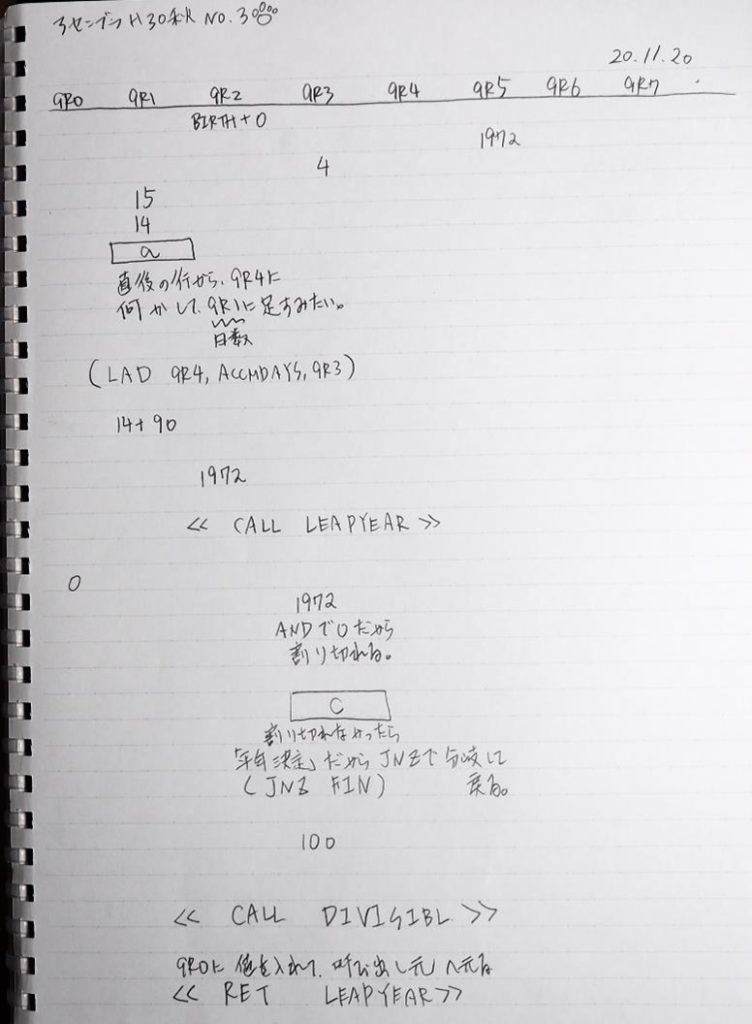 アセンブラ H30秋 NO.3
20.11.20
GR0 GR1 GR2 GR3 GR4 GR5 GR6 GR7
BIRTH+0
1972
4
15
14
a
直後の行から、GR4に
何かして、GR1に足すみたい。
日数
(LAD GR4, ACCMDAYS, GR3)
14+90
1972
<< CALL LEAPYEAR >>
0
1972
ANDで0だから
割り切れる。
C
割り切れなかったら
「平年決定」だからJNZで分岐して
(JNZ FIN) 戻る。
100
<< CALL DIVISIBL >>
GR0に値を入れて、呼び出し元へ元る
<< RET LEAPYEAR>>